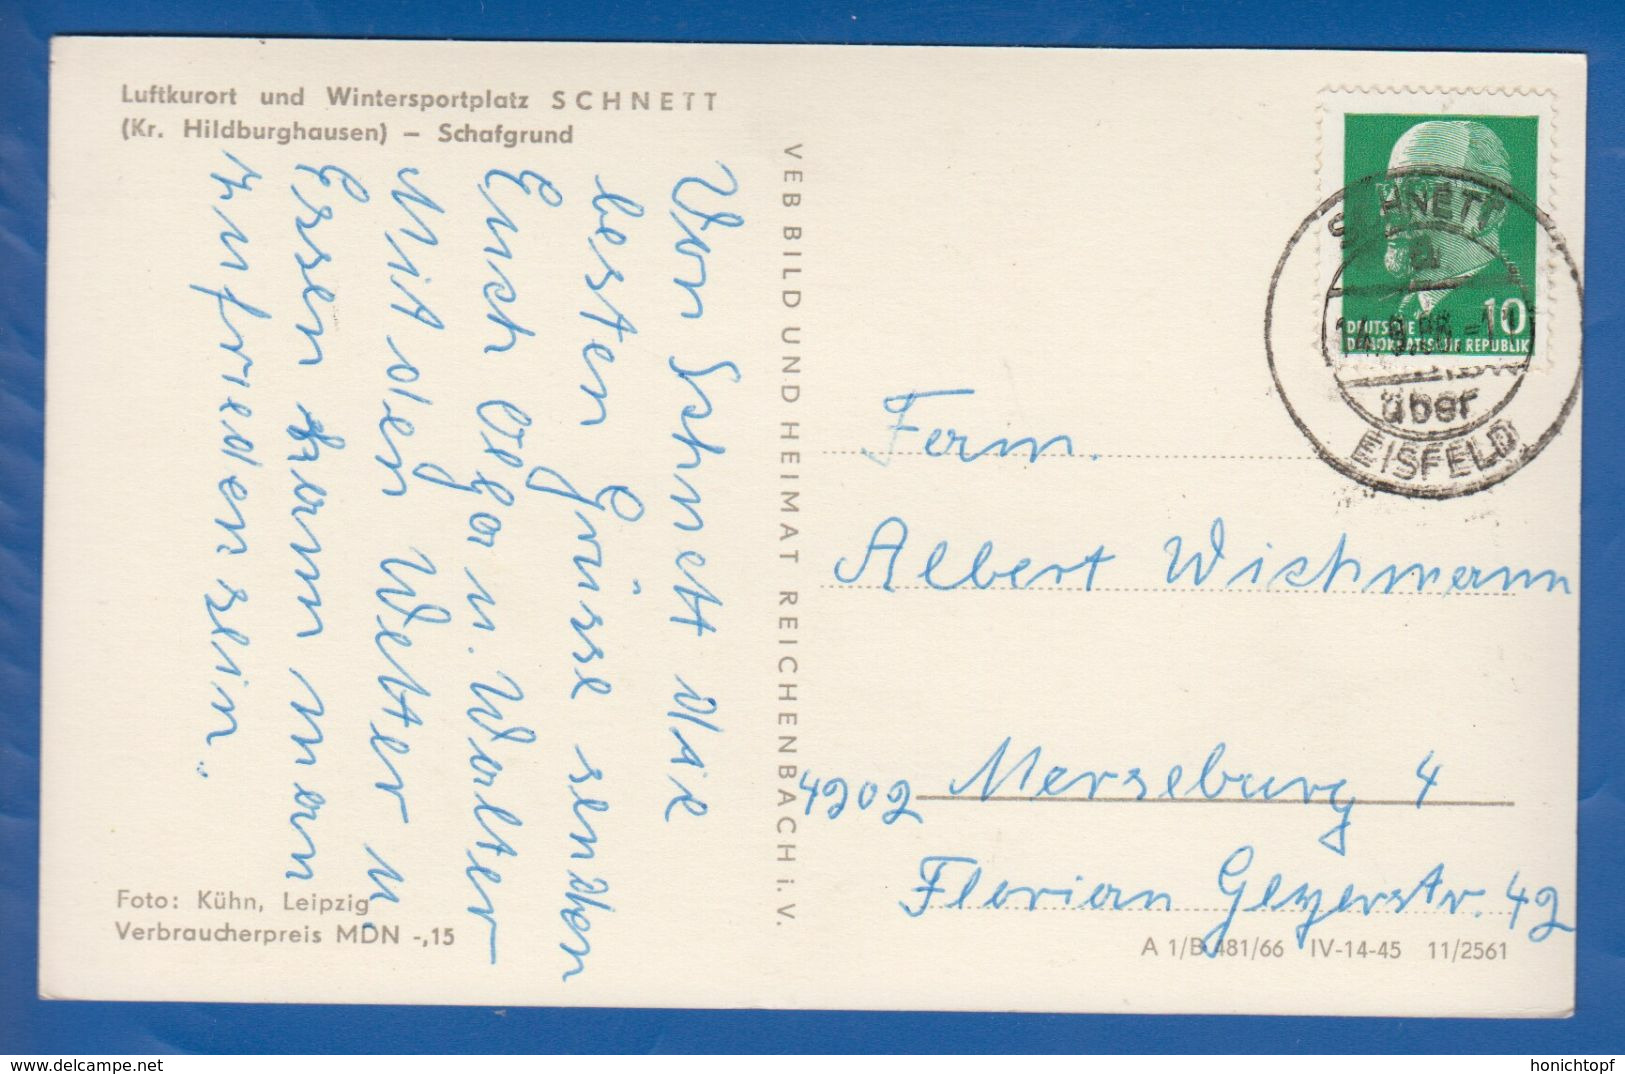 Luftkurort und Wintersportplatz SCHNETT
(Kr. Hildburghausen) – Schafgrund
Von Schnett die
besten Grüsse senden
Euch Olga u. Walter
Mit den Wetter u.
Essen kann man
zufrieden sein.
Foto: Kühn, Leipzig
Verbraucherpreis MDN -,15
VEB BILD UND HEIMAT REICHENBACH i. V.
10
DEUTSCHE
DEMOKRATISCHE REPUBLIK
SCHNETT
a
über
EISFELD
Fam.
Albert Wichmann
4202 Merseburg 4
Florian Geyerstr. 42
A 1/B 481/66 IV-14-45 11/2561
https://www.delcampe.net
honichtopf